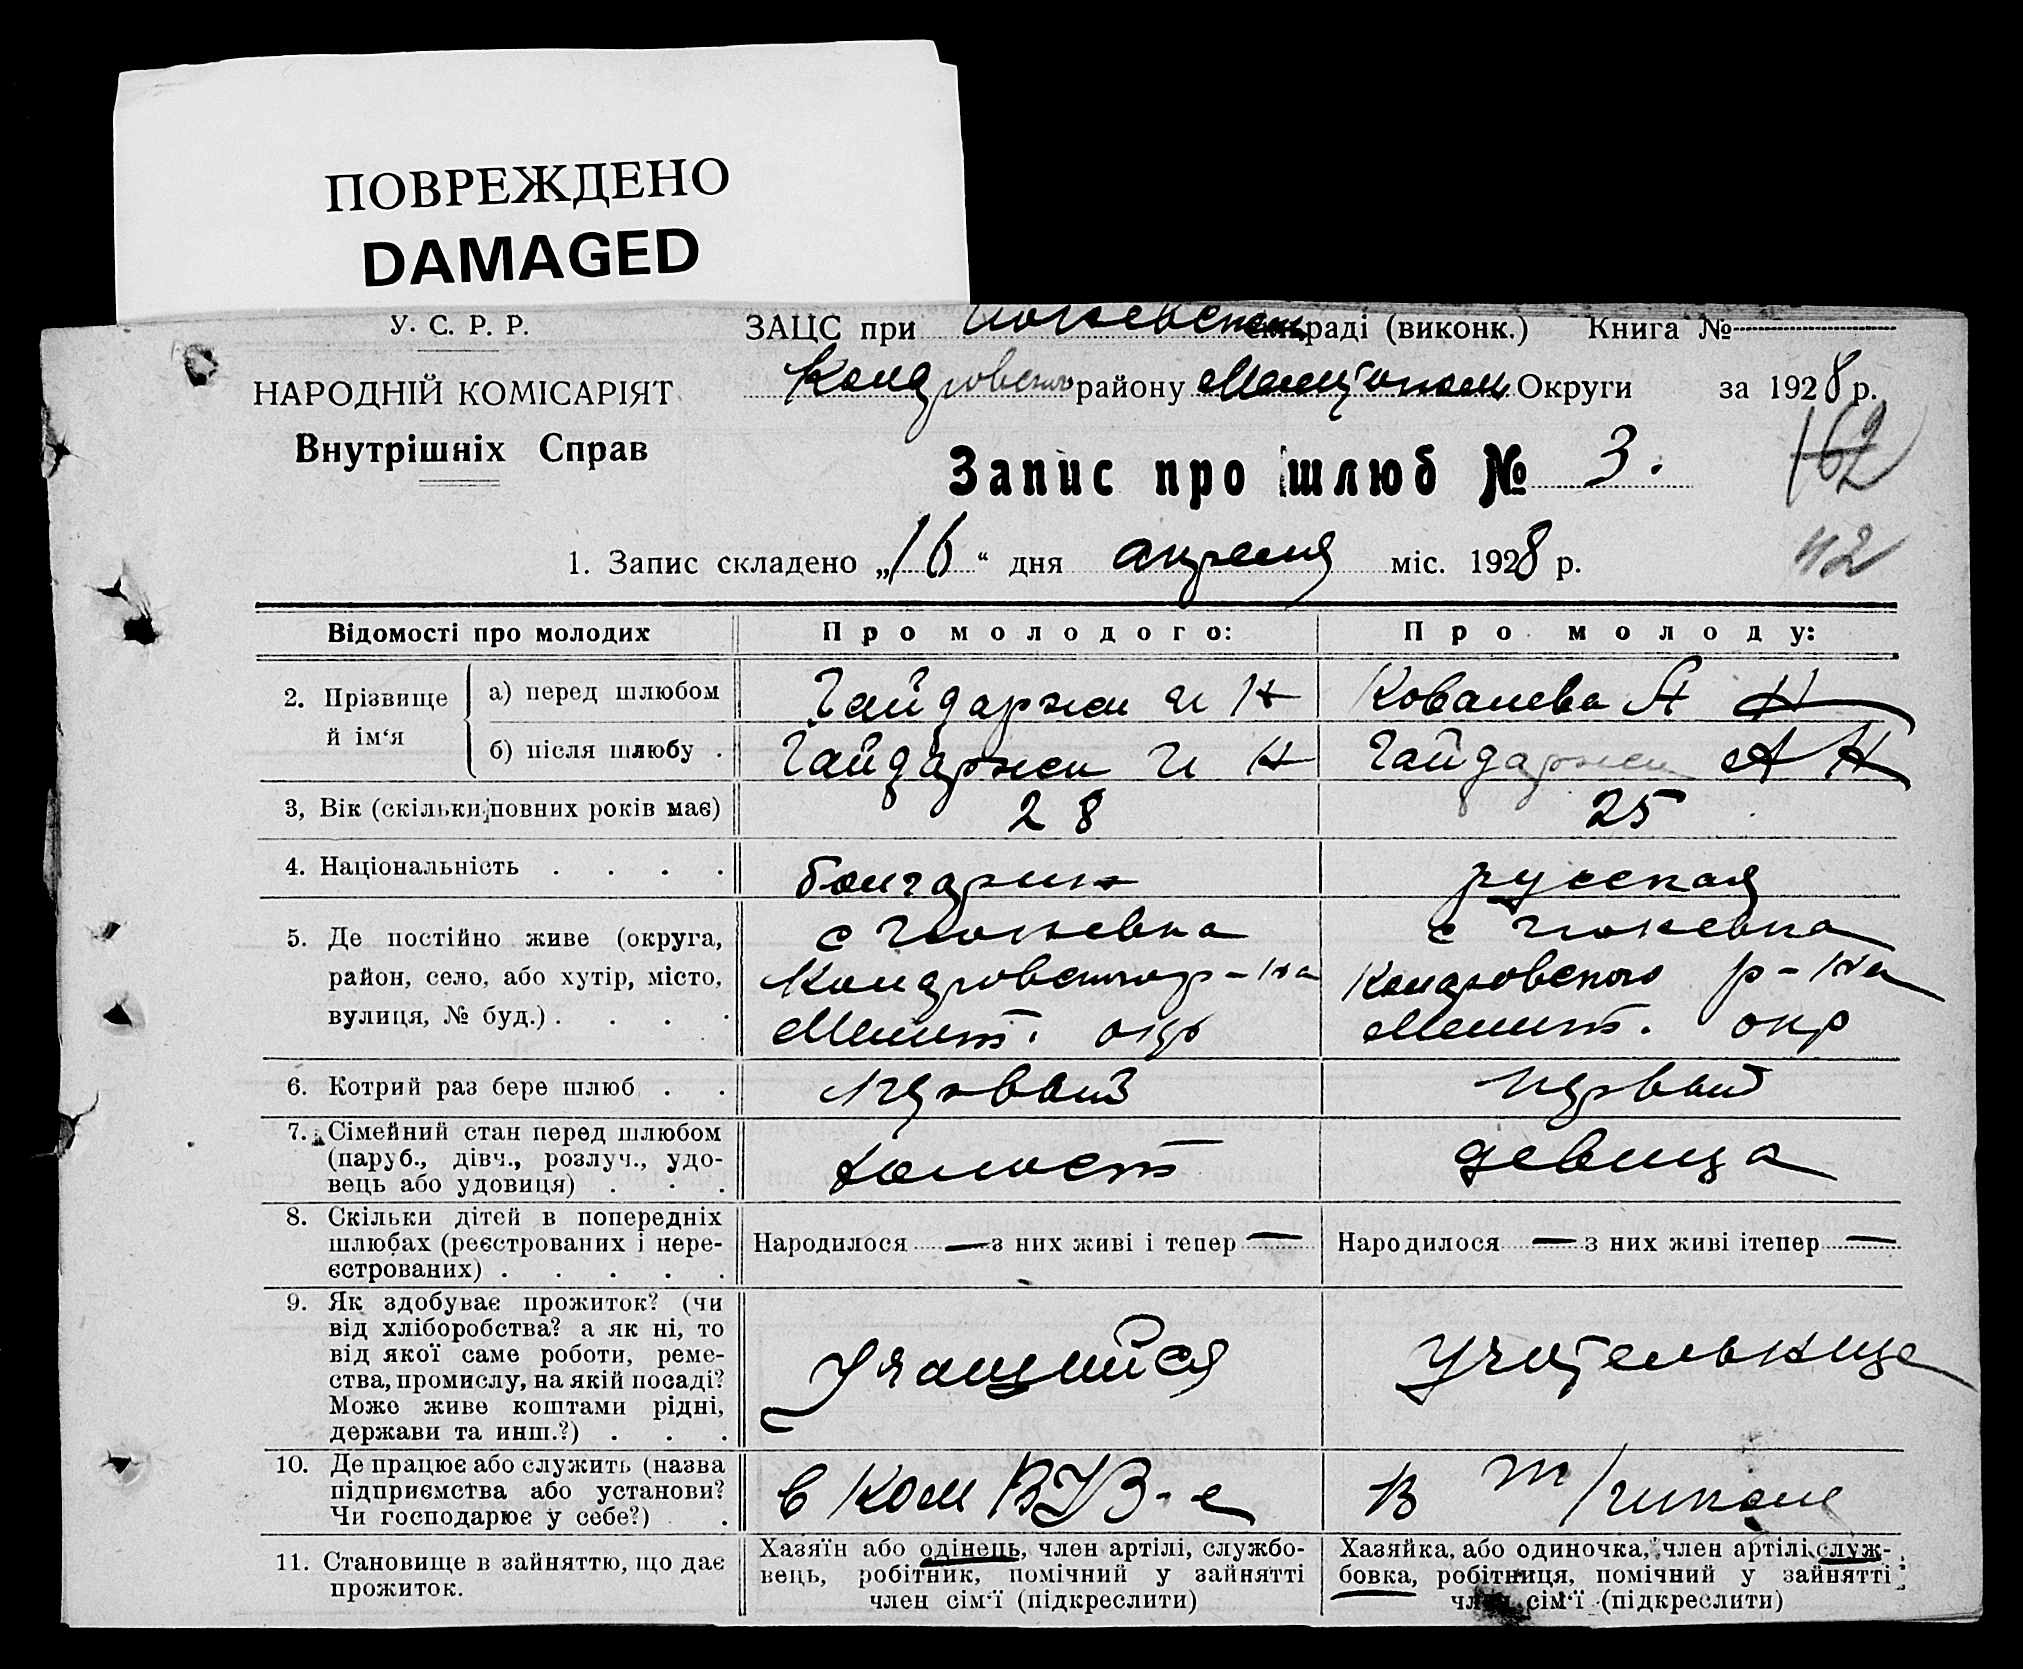 ПОВРЕЖДЕНО
DAMAGED
У. С. Р. Р.
ЗАЦС при раді (виконк.) Книга №
НАРОДНІЙ КОМІСАРІЯТ
району Округи за 1928 р.
Внутрішніх Справ
Запис про шлюб № 3.
162
42
1. Запис складено „16“ дня апреля міс. 1928 р.
Відомості про молодих Про молодого: Про молоду:
2. Прізвище й ім‘я
а) перед шлюбом Гайдаржи И Н Ковалева А Н
б) після шлюбу . Гайдаржи И Н Гайдаржи А Н
3, Вік (скільки повних років має) 28 25
4. Національність . . . . болгарин русская
5. Де постійно живе (округа, район, село, або хутір, місто, вулиця, № буд.) . . . .
с Гюневка
р-на
Мелит. окр
с Гюневка
р-на
Мелит. окр
6. Котрий раз бере шлюб . . первый первый
7. Сімейний стан перед шлюбом (паруб., дівч., розлуч., удовець або удовиця) . . . холост девица
8. Скільки дітей в попередніх шлюбах (реєстрованих і нереєстрованих) . . . . .
Народилося — з них живі і тепер —
Народилося — з них живі ітепер —
9. Як здобуває прожиток? (чи від хліборобства? а як ні, то від якої саме роботи, ремества, промислу, на якій посаді? Може живе коштами рідні, держави та инш.?) . . .
Учащийся
Учительница
10. Де працює або служить (назва підприємства або установи? Чи господарює у себе?) .
в Ком ВУЗ-е
В т/школе
11. Становище в зайняттю, що дає прожиток.
Хазяїн або одінець, член артілі, службовець, робітник, помічний у зайнятті член сім‘ї (підкреслити)
Хазяйка, або одиночка, член артілі, службовка, робітниця, помічний у зайнятті член сім‘ї (підкреслити)